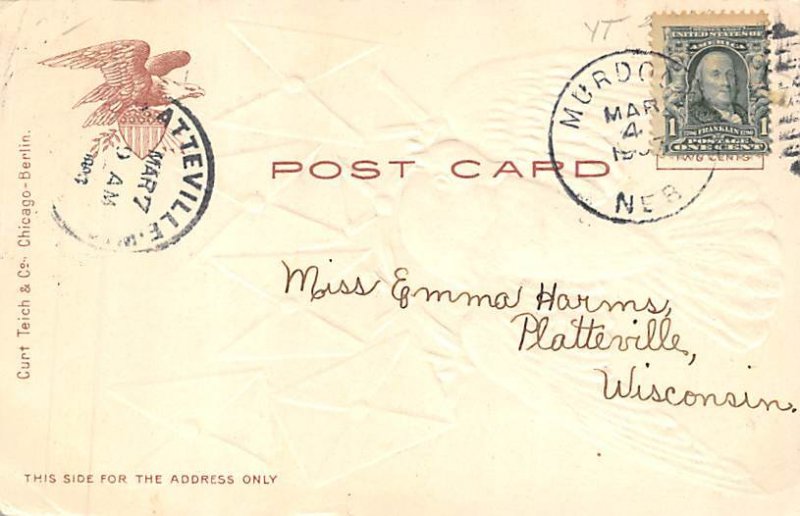 YT
UNITED STATES OF
AMERICA
1 FRANKLIN 1
POSTAGE
ONE CENT
TWO CENTS
MURDO
MAR
4
NEB
ATTEVILLE. W
MAR 7
AM
POST CARD
Curt Teich & Co. Chicago-Berlin.
Miss Emma Harms,
Platteville,
Wisconsin.
THIS SIDE FOR THE ADDRESS ONLY